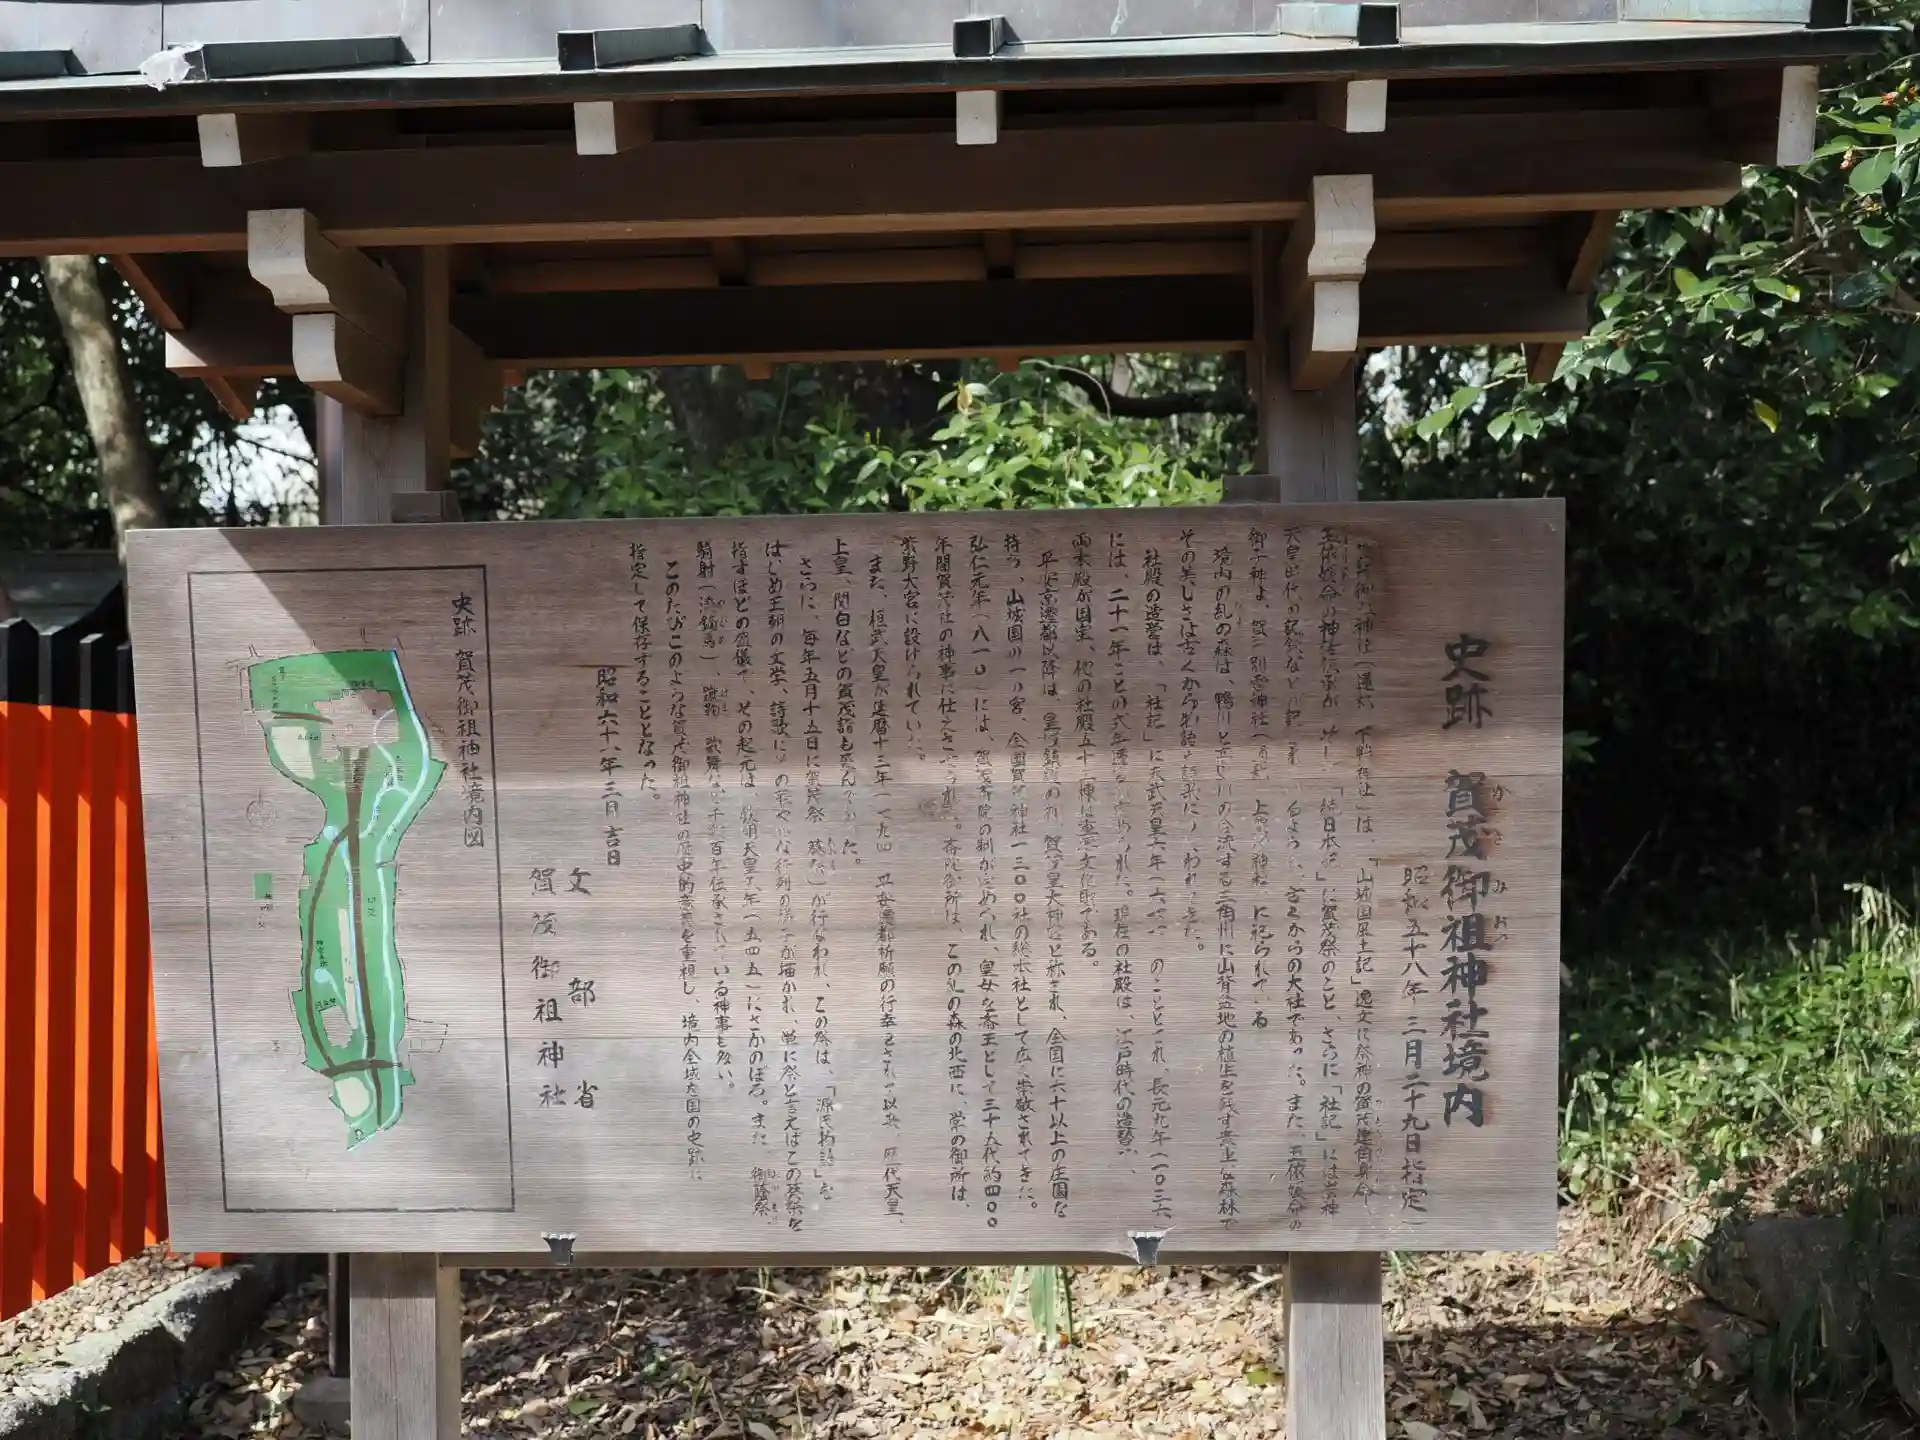 史跡 賀茂御祖神社境内
昭和五十八年三月二十九日指定
御祖神社(通称 下鴨神社)は、「山城国風土記」逸文に祭神の賀茂建角身命、
玉依媛命の神話伝承が 「続日本紀」に賀茂祭のこと、さらに「社記」には崇神
天皇時代の記録などが記 れ いるように、古くからの大社であった。また、玉依媛命の
御子神は、賀茂別雷神社(通称 上賀茂神社 に祀られている
境内の糺の森は、鴨川と高野川の合流する三角州に山背盆地の植生を残す貴重な森林で
その美しさは古くから物語や詩歌にうたわれてきた。
社殿の造営は、「社記」に天武天皇六年(六 のこととされ、長元九年(一〇三六)
には、二十一年ごとの式年遷宮が定められた。現在の社殿は、江戸時代の造替 、
両本殿が国宝、他の社殿五十三棟は重要文化財である。
平安京遷都以降は、皇城鎮護の神、賀茂皇大神宮と称され、全国に六十以上の庄園を
持ち、山城国の一の宮、全国賀茂神社一三〇〇社の総本社として広く崇敬されてきた。
弘仁元年(八一〇)には、賀茂斎院の制が定められ、皇女を斎王として三十五代約四〇〇
年間賀茂社の神事に仕えさせられた。斎院御所は、この糺の森の北西に、常の御所は、
紫野大宮に設けられていた。
また、桓武天皇が延暦十三年(七九四 平安遷都祈願の行幸をされて以来、歴代天皇、
上皇、関白などの賀茂詣も盛んであった。
さらに、毎年五月十五日に賀茂祭 葵祭)が行なわれ、この祭は、「源氏物語」を
はじめ王朝の文学、詩歌に の華やかな行列の様子が描かれ、単に祭と言えばこの葵祭を
指すほどの盛儀で、その起元は、欽明天皇五年(五四五)にさかのぼる。また、御蔭祭、
騎射(流鏑馬)、蹴鞠 歌舞など千数百年伝承されている神事も多い。
このたびこのような賀茂御祖神社の歴史的意義を重視し、境内全域を国の史跡に
指定して保存することとなった。
昭和六十一年三月吉日
文部省
賀茂御祖神社
史跡 賀茂御祖神社境内図